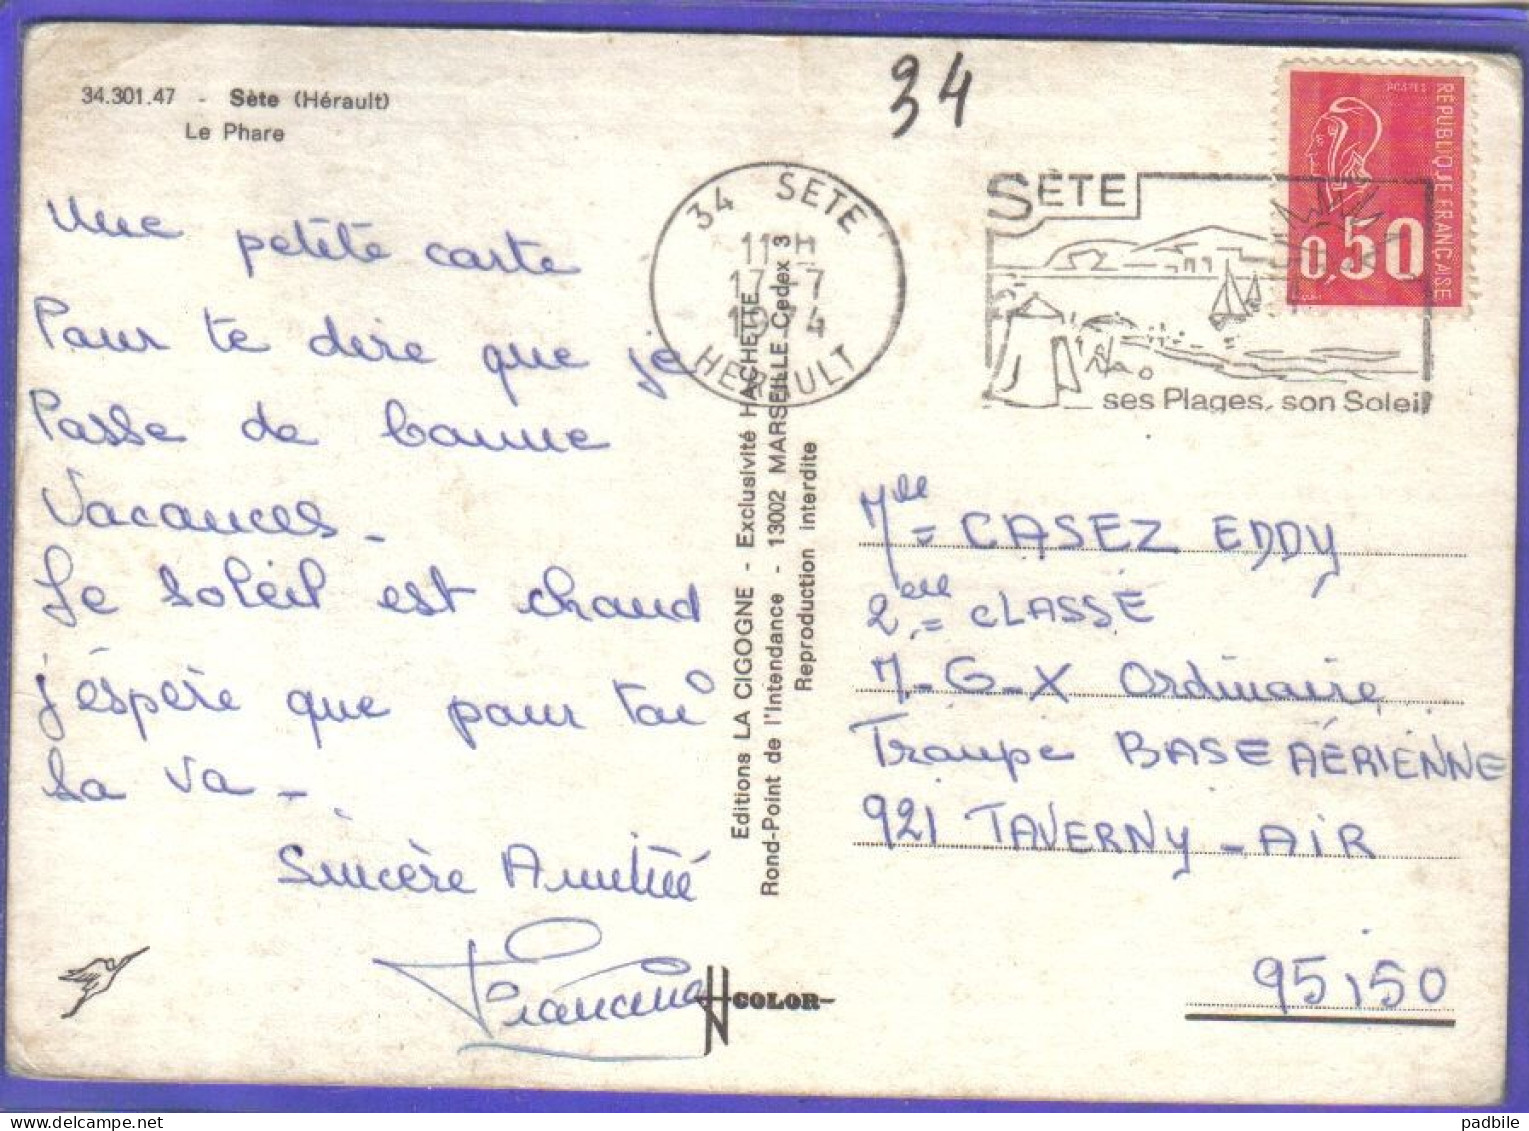 34.301.47 - Sète (Hérault)
Le Phare
34
Une petite carte
Pour te dire que je
Passe de bonne
Vacances -
Le soleil est chaud
j'éspère que pour toi
sa va -
Sincère Amitié
Francine
34 SETE
11 H
17-7
1974
HERAULT
SÈTE
ses Plages, son Soleil
POSTES
RÉPUBLIQUE FRANÇAISE
0,50
Editions LA CIGOGNE - Exclusivité HACHETTE
Rond-Point de l'Intendance - 13002 MARSEILLE Cedex 3
Reproduction interdite
COLOR
CASEZ EDDY
2ème CLASSE
M-G-X Ordinaire
Troupe BASE AÉRIENNE
921 TAVERNY-AIR
95150
padbile